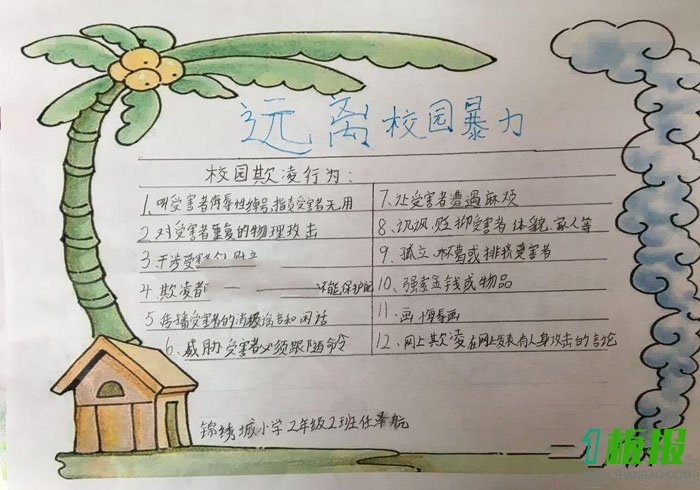 远离校园暴力
校园欺凌行为：
1.叫受害者侮辱性绰号,指责受害者无用
2.对受害者重复的物理攻击
3.干涉受害
4.欺凌者
5.传播受害者的消极谣言和闲话
6.威胁受害者必须跟随命令
7.让受害者遭遇麻烦
8.讥讽.贬抑受害者体貌.家人等
9.孤立.杯葛或排挤受害者
10.强索金钱或物品
11.画侮辱画
12.网上欺凌在网上发表有人身攻击的言论
锦绣城小学2年级2班任泽航
板报